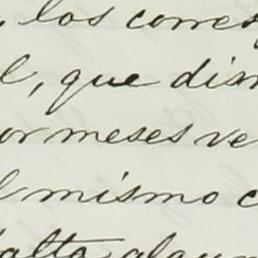 , los corres
l, que dism
or meses ve
l mismo c
falta algun